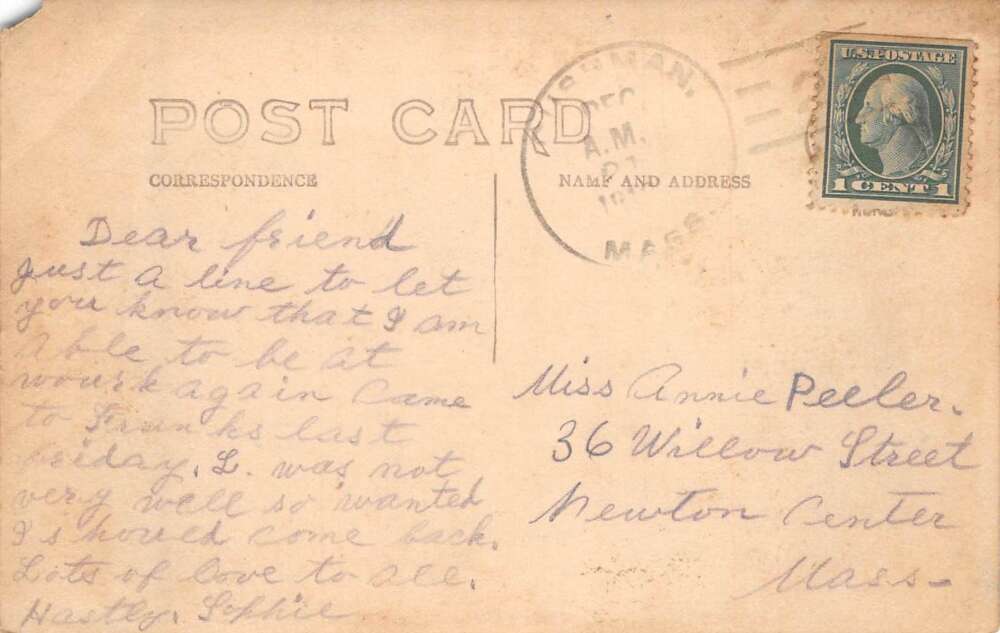 POST CARD
CORRESPONDENCE
NAME AND ADDRESS
DEC
A.M.
MASS
U.S. POSTAGE
1 CENT 1
Dear friend
Just a line to let
you know that I am
able to be at
wourk again Came
to Frunks last
friday. L. was not
very well so wanted
I should come back.
Lots of love to all.
Hastly. Sophie
Miss Annie Peeler.
36 Willow Street
Newton Center
Mass-